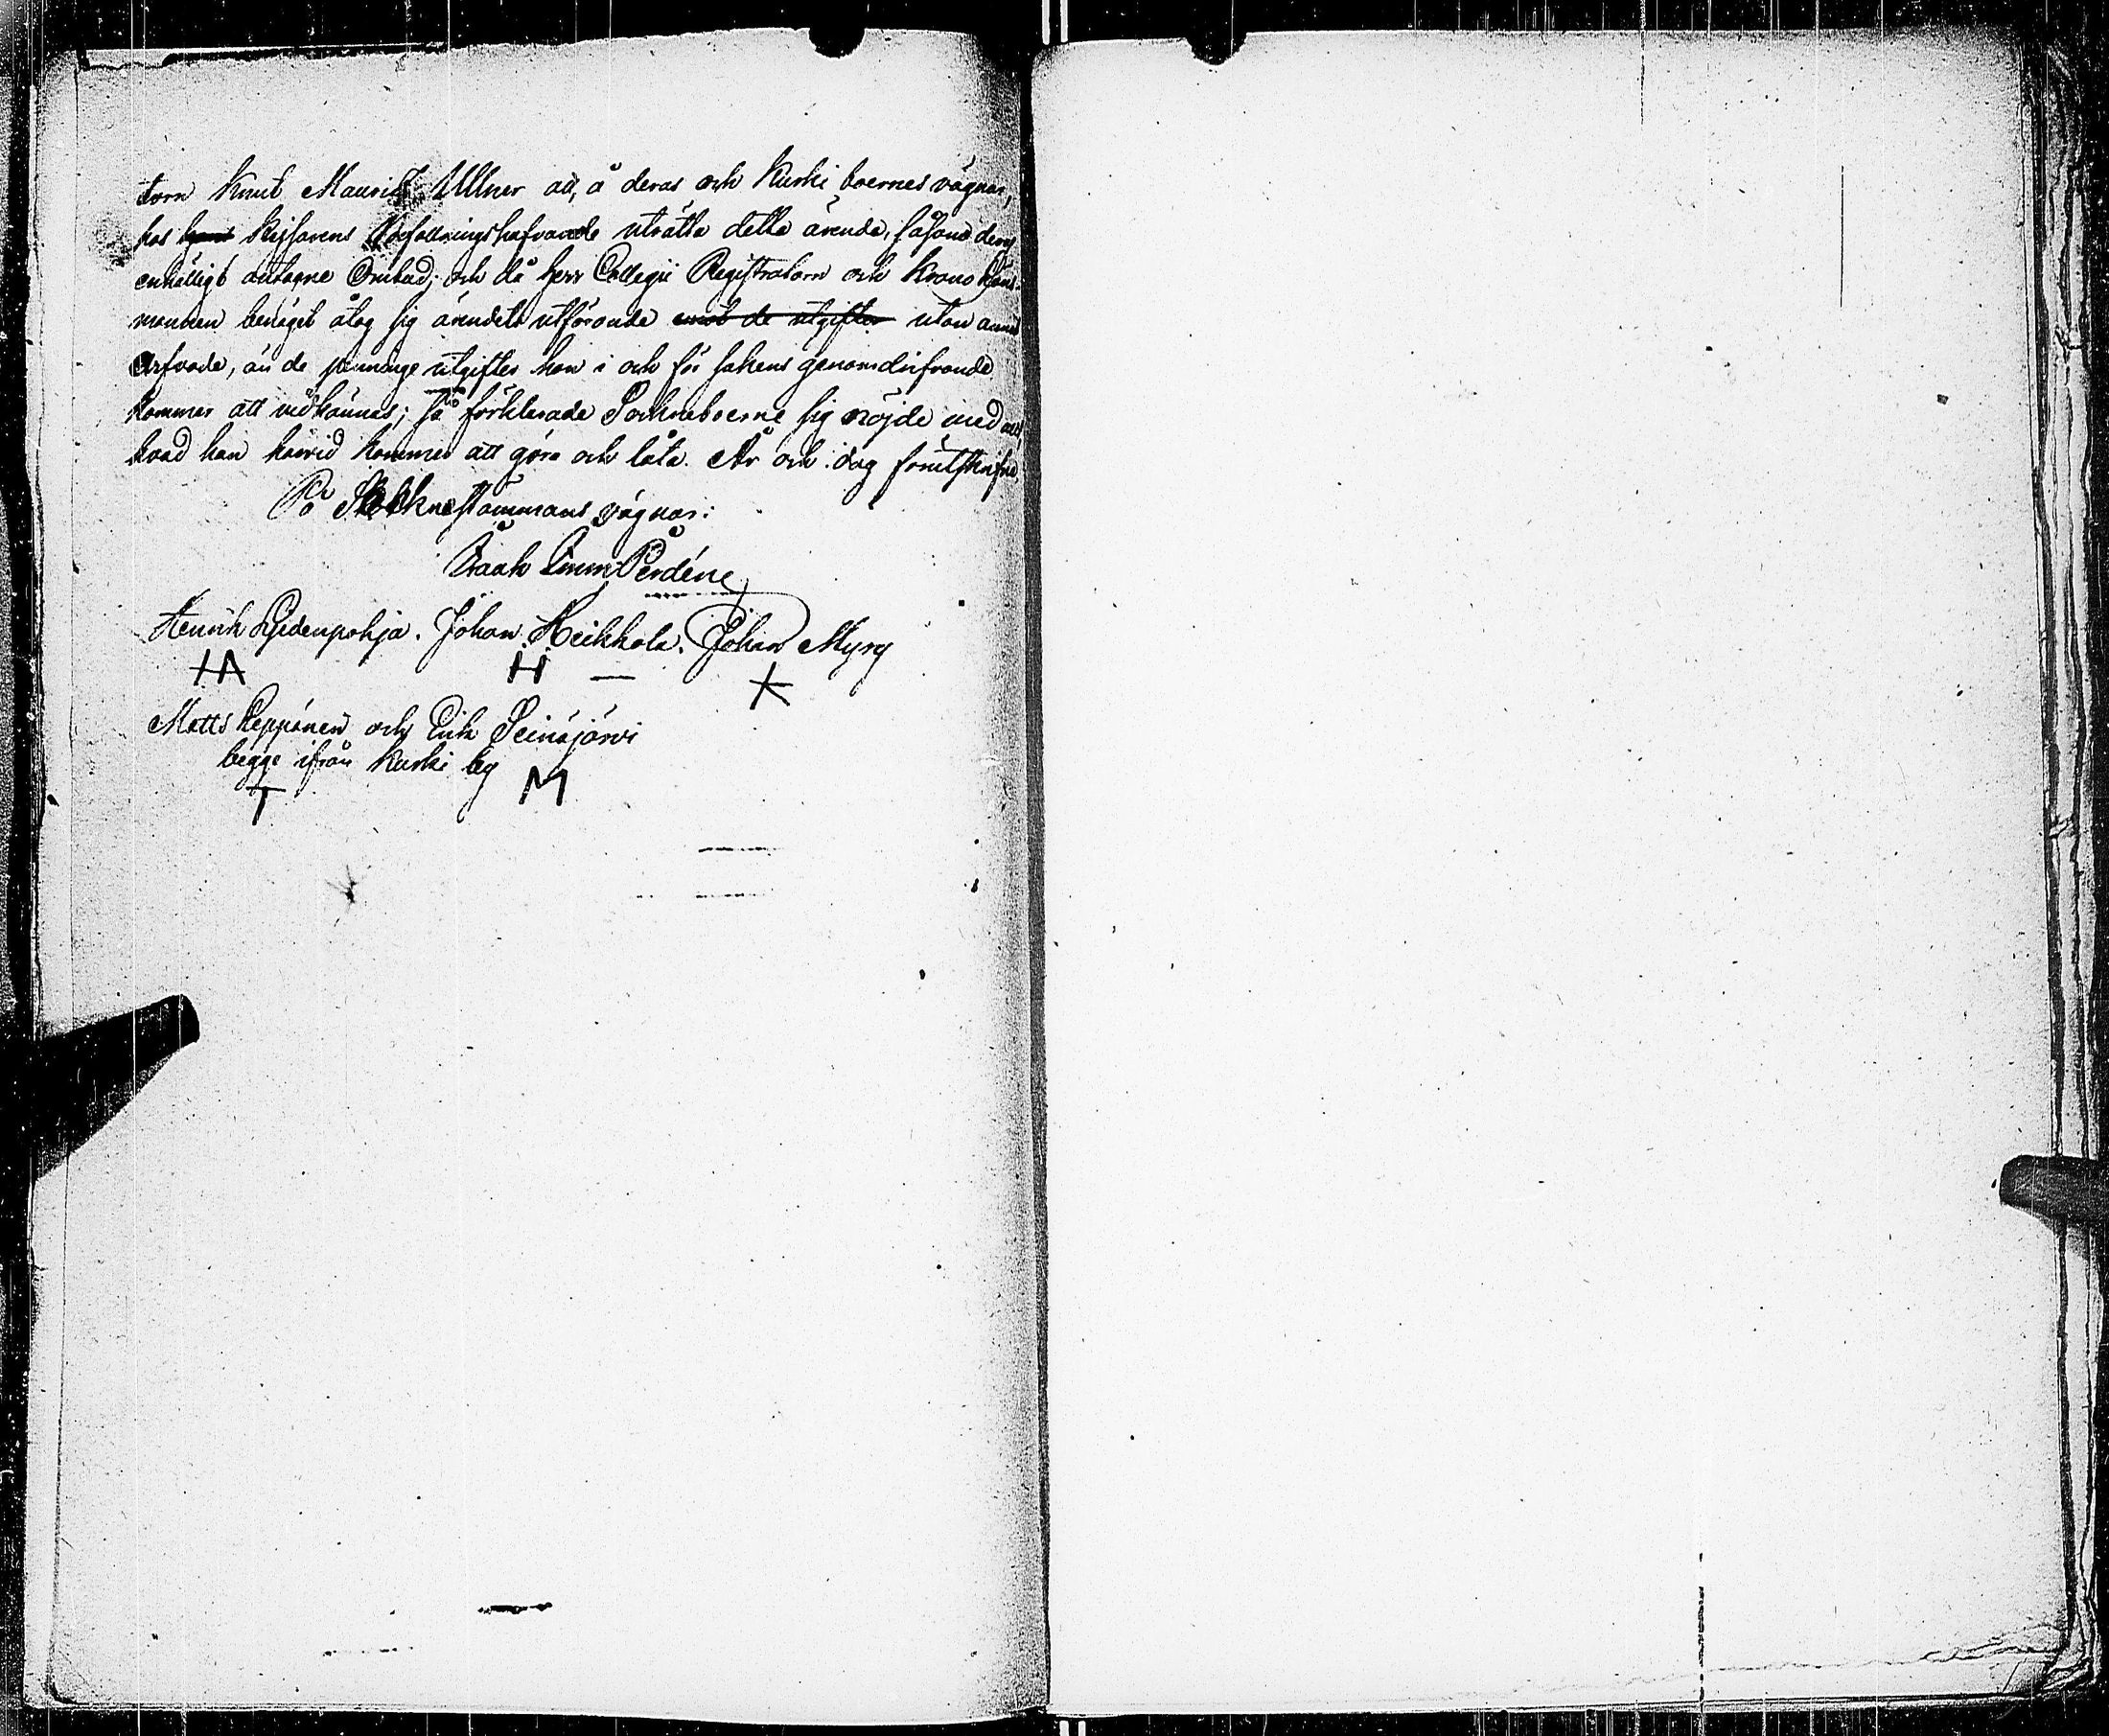 torn Knut Mauritz Ullner att, å deras och Kurki boernes vägnar,
hos Kejsarens Befallningshafvande uträtta detta ärende, såsom deras
enhälligt antagne Ombud; och då herr Collegii Registratorn och Krono Läns-
mannen benäget åtog sig ärendets utförande emot de utgifter utan annat
Arfvode, än de penninge utgifter han i och för sakens genomdrifvande
kommer att vidkännas; så förklarade Sockneboerne sig nöjde med allt,
hvad han härvid kommer att göra och låta. År och dag förutskrifne
På Sockne stämmans vägnar:
Isaak Emm
Henrik Johan Heikkola. Johan Myry
HA H X
Matts Reppänen och Erik Seinäjärvi
begge ifrån Kurki by
T M